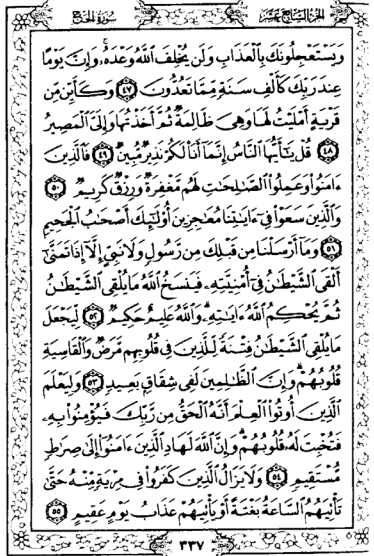 سُورَةُ الحَجِّ الجُزْءُ السَّابِعَ عَشَرَ
وَيَسْتَعْجِلُونَكَ بِالْعَذَابِ وَلَن يُخْلِفَ اللَّهُ وَعْدَهُۥ وَإِنَّ يَوْمًا
عِندَ رَبِّكَ كَأَلْفِ سَنَةٍ مِّمَّا تَعُدُّونَ ٤٧ وَكَأَيِّن مِّن
قَرْيَةٍ أَمْلَيْتُ لَهَا وَهِىَ ظَالِمَةٌ ثُمَّ أَخَذْتُهَا وَإِلَىَّ الْمَصِيرُ
٤٨ قُلْ يَٰٓأَيُّهَا النَّاسُ إِنَّمَآ أَنَا۠ لَكُمْ نَذِيرٌ مُّبِينٌ ٤٩ فَالَّذِينَ
ءَامَنُوا۟ وَعَمِلُوا۟ الصَّٰلِحَٰتِ لَهُم مَّغْفِرَةٌ وَرِزْقٌ كَرِيمٌ ٥٠
وَالَّذِينَ سَعَوْا۟ فِىٓ ءَايَٰتِنَا مُعَٰجِزِينَ أُو۟لَٰٓئِكَ أَصْحَٰبُ الْجَحِيمِ
٥١ وَمَآ أَرْسَلْنَا مِن قَبْلِكَ مِن رَّسُولٍ وَلَا نَبِىٍّ إِلَّآ إِذَا تَمَنَّىٰٓ
أَلْقَى الشَّيْطَٰنُ فِىٓ أُمْنِيَّتِهِۦ فَيَنسَخُ اللَّهُ مَا يُلْقِى الشَّيْطَٰنُ
ثُمَّ يُحْكِمُ اللَّهُ ءَايَٰتِهِۦ وَاللَّهُ عَلِيمٌ حَكِيمٌ ٥٢ لِّيَجْعَلَ
مَا يُلْقِى الشَّيْطَٰنُ فِتْنَةً لِّلَّذِينَ فِى قُلُوبِهِم مَّرَضٌ وَالْقَاسِيَةِ
قُلُوبُهُمْ وَإِنَّ الظَّٰلِمِينَ لَفِى شِقَاقٍۭ بَعِيدٍ ٥٣ وَلِيَعْلَمَ
الَّذِينَ أُوتُوا۟ الْعِلْمَ أَنَّهُ الْحَقُّ مِن رَّبِّكَ فَيُؤْمِنُوا۟ بِهِۦ
فَتُخْبِتَ لَهُۥ قُلُوبُهُمْ وَإِنَّ اللَّهَ لَهَادِ الَّذِينَ ءَامَنُوٓا۟ إِلَىٰ صِرَٰطٍ
مُّسْتَقِيمٍ ٥٤ وَلَا يَزَالُ الَّذِينَ كَفَرُوا۟ فِى مِرْيَةٍ مِّنْهُ حَتَّىٰ
تَأْتِيَهُمُ السَّاعَةُ بَغْتَةً أَوْ يَأْتِيَهُمْ عَذَابُ يَوْمٍ عَقِيمٍ ٥٥
٣٣٧